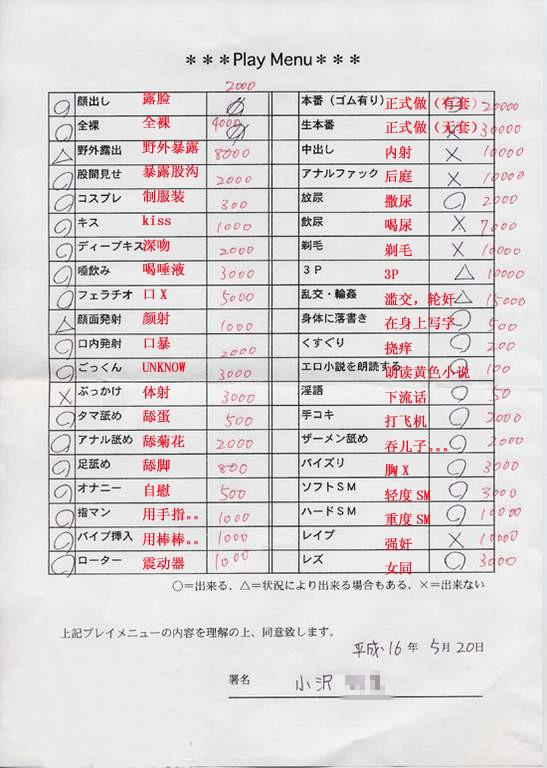 ***Play Menu***
2000
○ 顔出し 露脸
○ 全裸 全裸 4000
△ 野外露出 野外暴露 8000
○ 股間見せ 暴露股沟 2000
○ コスプレ 制服装 300
○ キス kiss 1000
○ ディープキス 深吻 2000
○ 唾飲み 喝唾液 3000
○ フェラチオ 口X 5000
△ 顔面発射 颜射 1000
○ 口内発射 口暴 2000
○ ごっくん UNKNOW 3000
× ぶっかけ 体射 3000
○ タマ舐め 舔蛋 500
○ アナル舐め 舔菊花 2000
○ 足舐め 舔脚 800
○ オナニー 自慰 500
○ 指マン 用手指。。 1000
○ バイブ挿入 用棒棒。。 1000
○ ローター 震动器 1000
本番（ゴム有り） 正式做（有套） ○ 20000
生本番 正式做（无套） × 30000
中出し 内射 × 10000
アナルファック 后庭 × 10000
放尿 撒尿 ○ 2000
飲尿 喝尿 × 7000
剃毛 剃毛 × 10000
３Ｐ 3P △ 10000
乱交・輪姦 滥交，轮奸 △ 15000
身体に落書き 在身上写字 ○ 500
くすぐり 挠痒 ○ 200
エロ小説を朗読する 朗读黄色小说 ○ 100
淫語 下流话 ○ 50
手コキ 打飞机 ○ 2000
ザーメン舐め 吞儿子。。。 ○ 2000
パイズリ 胸X ○ 3000
ソフトＳＭ 轻度SM ○ 3000
ハードＳＭ 重度SM ○ 10000
レイプ 强奸 × 10000
レズ 女同 ○ 3000
○＝出来る、△＝状況により出来る場合もある、×＝出来ない
上記プレイメニューの内容を理解の上、同意致します。
平成16年 5月20日
署名 小沢